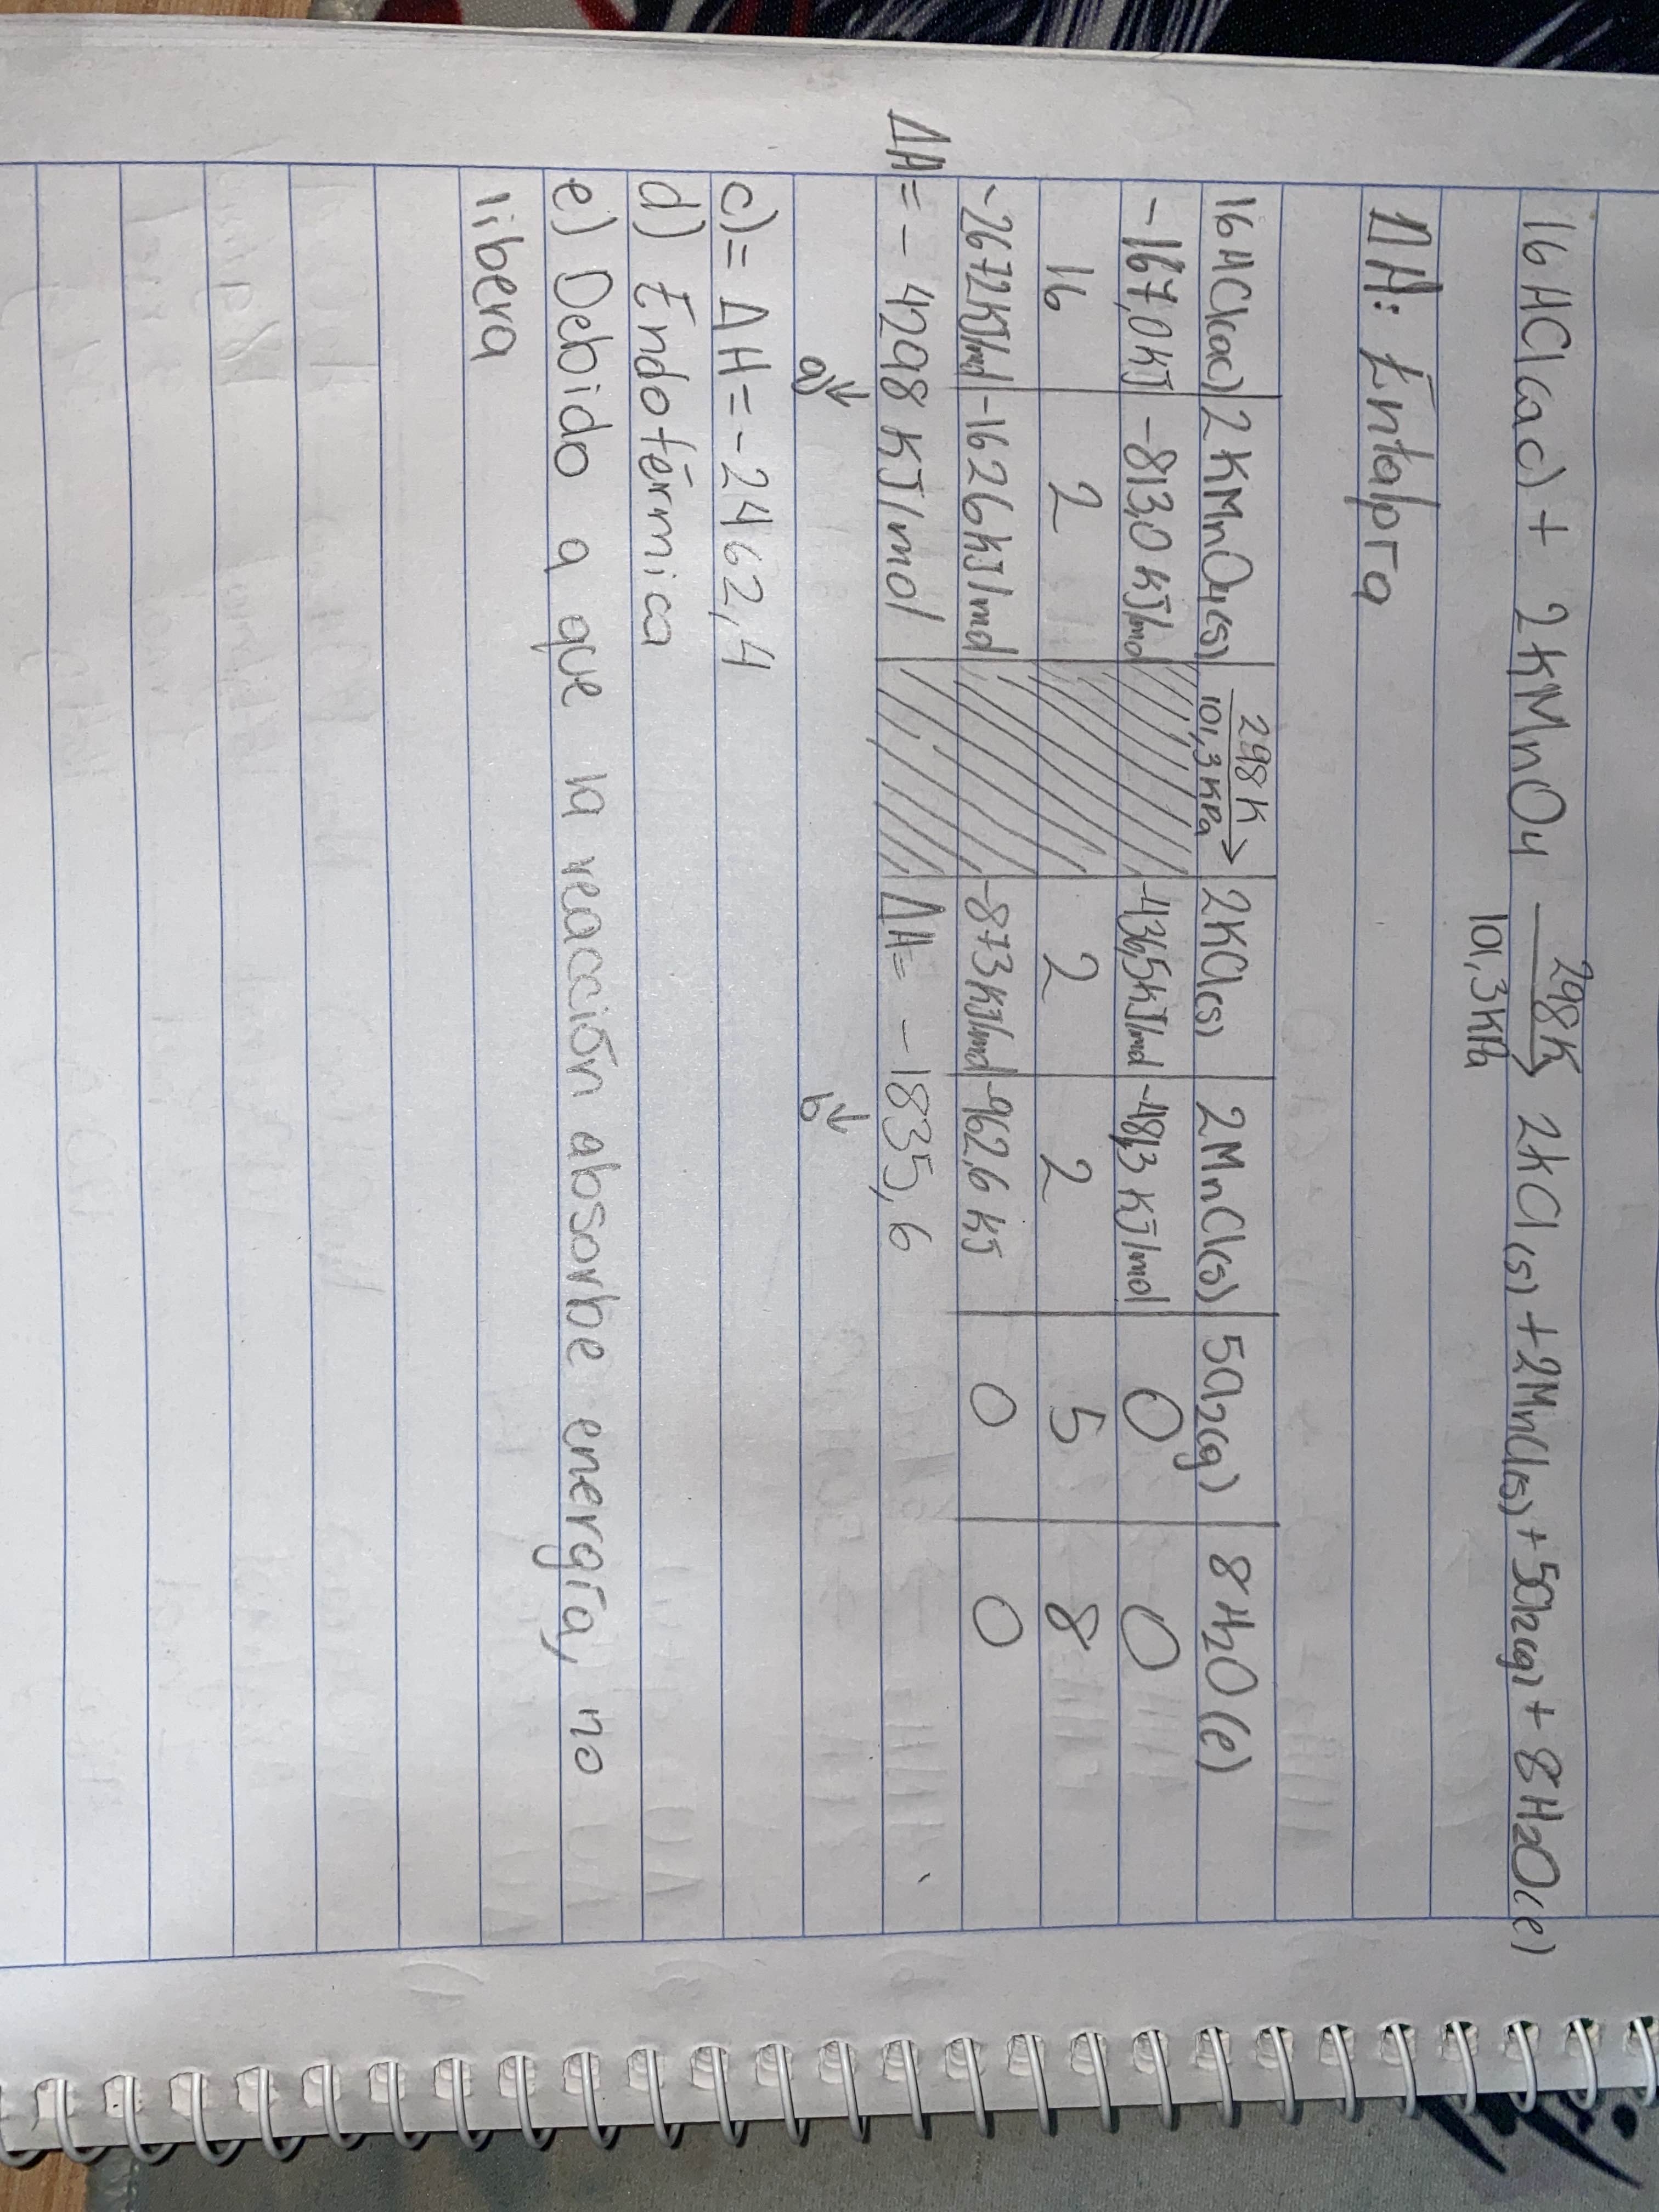 298K
16 HCl(ac) + 2KMnO4 → 2KCl(s) + 2MnCl(s) + 5Cl2(g) + 8H2O(e)
101,3KPa
ΔH: Entalpía
16HCl(ac) 2KMnO4(s) 298K → 101,3KPa 2KCl(s) 2MnCl(s) 5Cl2(g) 8H2O(e)
-167,0KJ -813,0 KJ/mol -436,5KJ/mol -481,3 KJ/mol 0 0
16 2 2 2 5 8
-2672KJ/mol -1626KJ/mol -873KJ/mol -962,6 KJ 0 0
ΔH= - 4298 KJ/mol ΔH= -1835,6
a) b
c)= ΔH=-2462,4
d) Endotérmica
e) Debido a que la reacción absorbe energía, no
libera